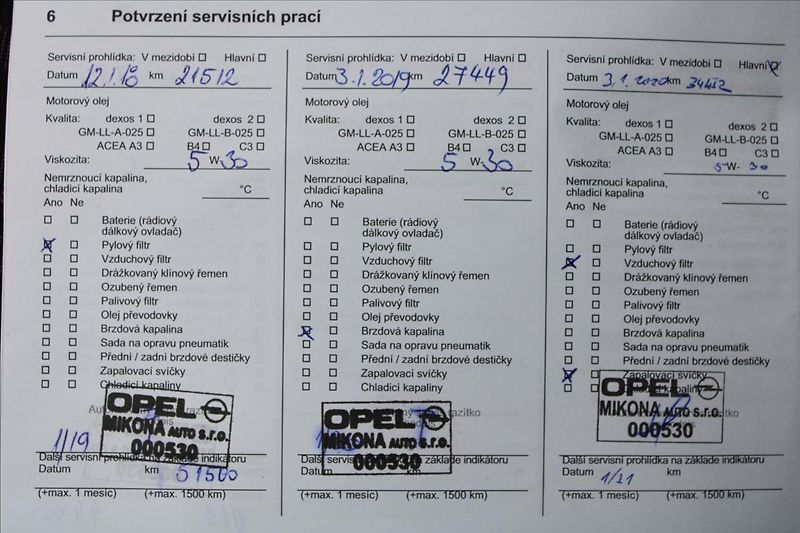 6 Potvrzení servisních prací
Servisní prohlídka: V mezidobí Hlavní
Datum 12.1.18 km 21512
Motorový olej
Kvalita: dexos 1 dexos 2
GM-LL-A-025 GM-LL-B-025
ACEA A3 B4 C3
Viskozita: 5 W-30
Nemrznoucí kapalina,
chladicí kapalina °C
Ano Ne
Baterie (rádiový
dálkový ovladač)
Pylový filtr
Vzduchový filtr
Drážkovaný klínový řemen
Ozubený řemen
Palivový filtr
Olej převodovky
Brzdová kapalina
Sada na opravu pneumatik
Přední / zadní brzdové destičky
Zapalovací svíčky
Chladicí kapaliny
OPEL
MIKONA AUTO s.r.o.
000530
1/19
Další servisní prohlídka na základě indikátoru
Datum km 51500
(+max. 1 mesic) (+max. 1500 km)
Servisní prohlídka: V mezidobí Hlavní
Datum 3.1.2019 km 27449
Motorový olej
Kvalita: dexos 1 dexos 2
GM-LL-A-025 GM-LL-B-025
ACEA A3 B4 C3
Viskozita: 5 W-30
Nemrznoucí kapalina,
chladicí kapalina °C
Ano Ne
Baterie (rádiový
dálkový ovladač)
Pylový filtr
Vzduchový filtr
Drážkovaný klínový řemen
Ozubený řemen
Palivový filtr
Olej převodovky
Brzdová kapalina
Sada na opravu pneumatik
Přední / zadní brzdové destičky
Zapalovací svíčky
Chladicí kapaliny
razítko
OPEL
MIKONA AUTO s.r.o.
000530
Další servisní na základě indikátoru
Datum km
(+max. 1 mesic) (+max. 1500 km)
Servisní prohlídka: V mezidobí Hlavní
Datum 3.1.2020 km
Motorový olej
Kvalita: dexos 1 dexos 2
GM-LL-A-025 GM-LL-B-025
ACEA A3 B4 C3
Viskozita: 5 W- 30
Nemrznoucí kapalina,
chladicí kapalina °C
Ano Ne
Baterie (rádiový
dálkový ovladač)
Pylový filtr
Vzduchový filtr
Drážkovaný klínový řemen
Ozubený řemen
Palivový filtr
Olej převodovky
Brzdová kapalina
Sada na opravu pneumatik
Přední / zadní brzdové destičky
Zapalovací svíčky
Chladicí kapaliny
OPEL
MIKONA AUTO s.r.o.
000530
Další servisní prohlídka na základě indikátoru
Datum 1/21 km
(+max. 1 mesic) (+max. 1500 km)